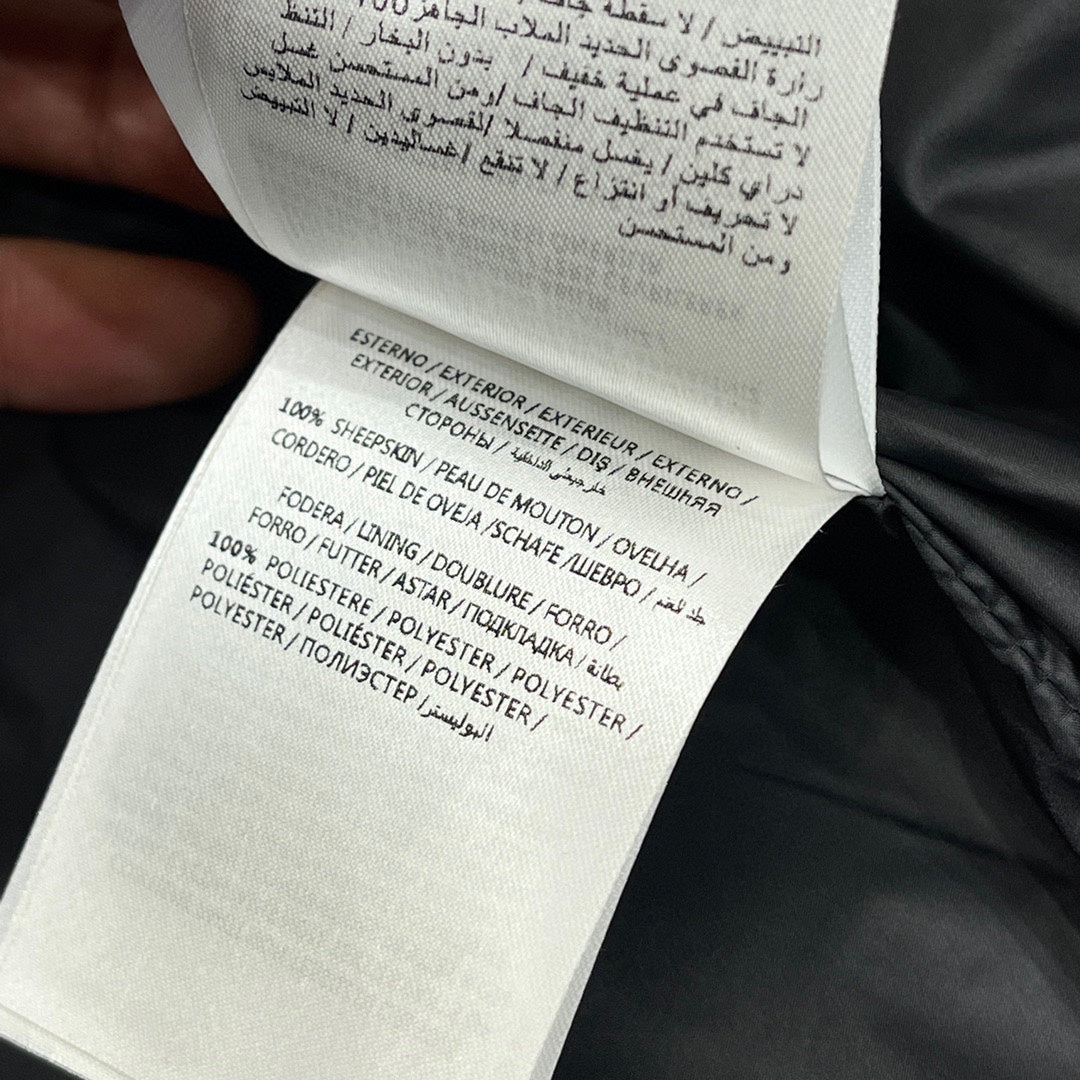 التبييض / لا سقطة جاف
رارة القصوى الحديد الملاب الجاهز 100
الجاف في عملية خفيف / بدون البخار / التنظ
لا تستخدم التنظيف الجاف /ومن المستحسن غسل
دراي كلين / يغسل منفصلا /لقصوي الحديد الملابس
لا تحريف أو انتزاع / لا تنقع /غساليدين / لا التبييض
ومن المستحسن
ESTERNO / EXTERIOR / EXTERIEUR / EXTERNO /
EXTERIOR / AUSSENSEITE / DIŞ / ВНЕШҺЯЯ
СТОРОНЫ /
100% SHEEPSKIN / PEAU DE MOUTON / OVELHA /
CORDERO / PIEL DE OVEJA /SCHAFE /ШЕВРО /
FODERA / LINING / DOUBLURE / FORRO /
FORRO / FUTTER / ASTAR / ПОДКЛАДКА / بطانة
100% POLIESTERE / POLYESTER / POLYESTER /
POLIÉSTER / POLIÉSTER / POLYESTER /
POLYESTER / ПОЛИЭСТЕР /البوليستر